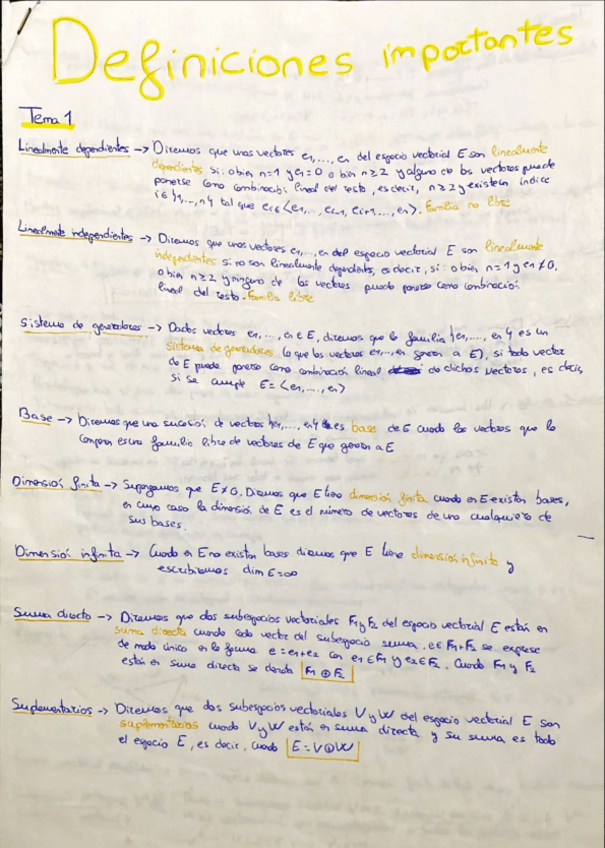 Definiciones importantes
Tema 1
Linealmente dependientes -> Diremos que unos vectores e1,...,en del espacio vectorial E son linealmente
dependientes si: o bien n=1 y e1=0 o bien n≥2 y alguno de los vectores puede
ponerse como combinación lineal del resto, es decir, n≥2 y existe un índice
i∈{1,...,n} tal que ei∈<e1,...,ei-1,ei+1,...,en>. Familia no libre
Linealmente independientes -> Diremos que unos vectores e1,...,en del espacio vectorial E son linealmente
independientes si no son linealmente dependientes, es decir, si: o bien, n=1 y e1≠0,
o bien n≥2 y ninguno de los vectores puede ponerse como combinación
lineal del resto. Familia libre
Sistema de generadores -> Dados vectores e1,...,en∈E, diremos que la familia {e1,...,en} es un
sistema de generadores (o que los vectores e1,...,en generan a E), si todo vector
de E puede ponerse como combinación lineal de dichos vectores, es decir,
si se cumple E=<e1,...,en>
Base -> Diremos que una sucesión de vectores {e1,...,en} es base de E cuando los vectores que la
componen es una familia libre de vectores de E que generan a E
Dimensión finita -> Supongamos que E≠0. Diremos que E tiene dimensión finita cuando en E existen bases,
en cuyo caso la dimensión de E es el número de vectores de una cualquiera de
sus bases.
Dimensión infinita -> Cuando en E no existan bases diremos que E tiene dimensión infinita y
escribiremos dim E=∞
Suma directa -> Diremos que dos subespacios vectoriales F1 y F2 del espacio vectorial E están en
suma directa cuando cada vector del subespacio suma, e∈F1+F2 se exprese
de modo único en la forma e=e1+e2 con e1∈F1 y e2∈F2. Cuando F1 y F2
están en suma directa se denota F1⊕F2
Suplementarios -> Diremos que dos subespacios vectoriales V y W del espacio vectorial E son
suplementarios cuando V y W están en suma directa y su suma es todo
el espacio E, es decir, cuando E=V⊕W